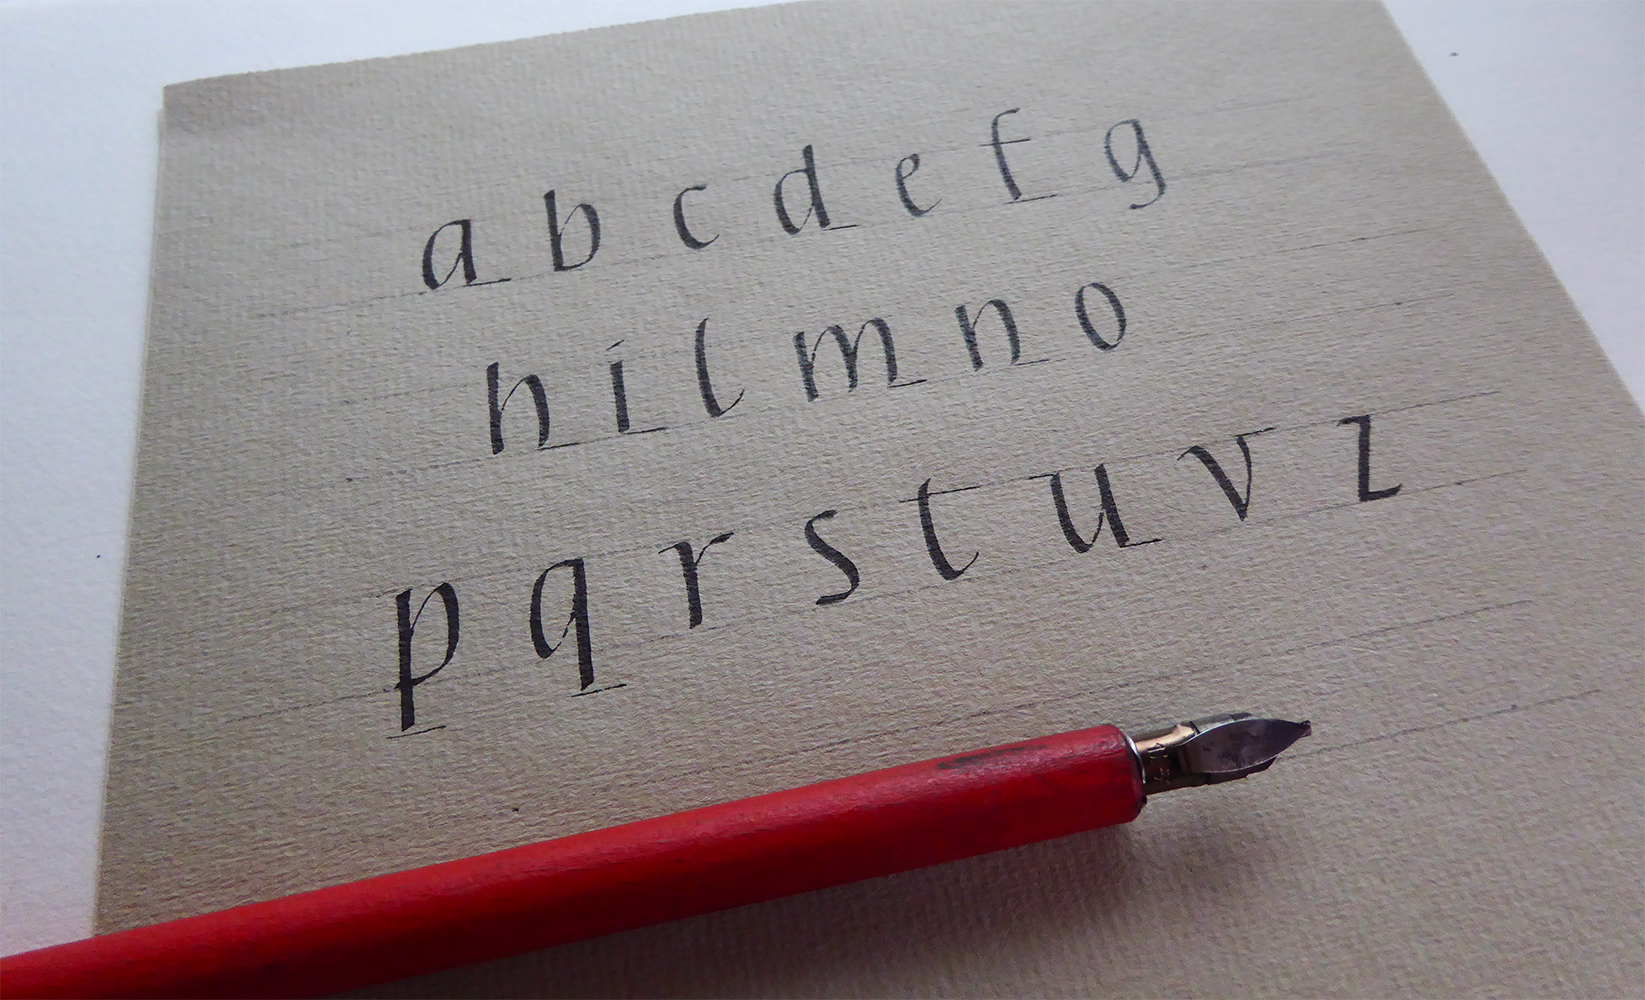 a b c d e f g
h i l m n o
p q r s t u v z